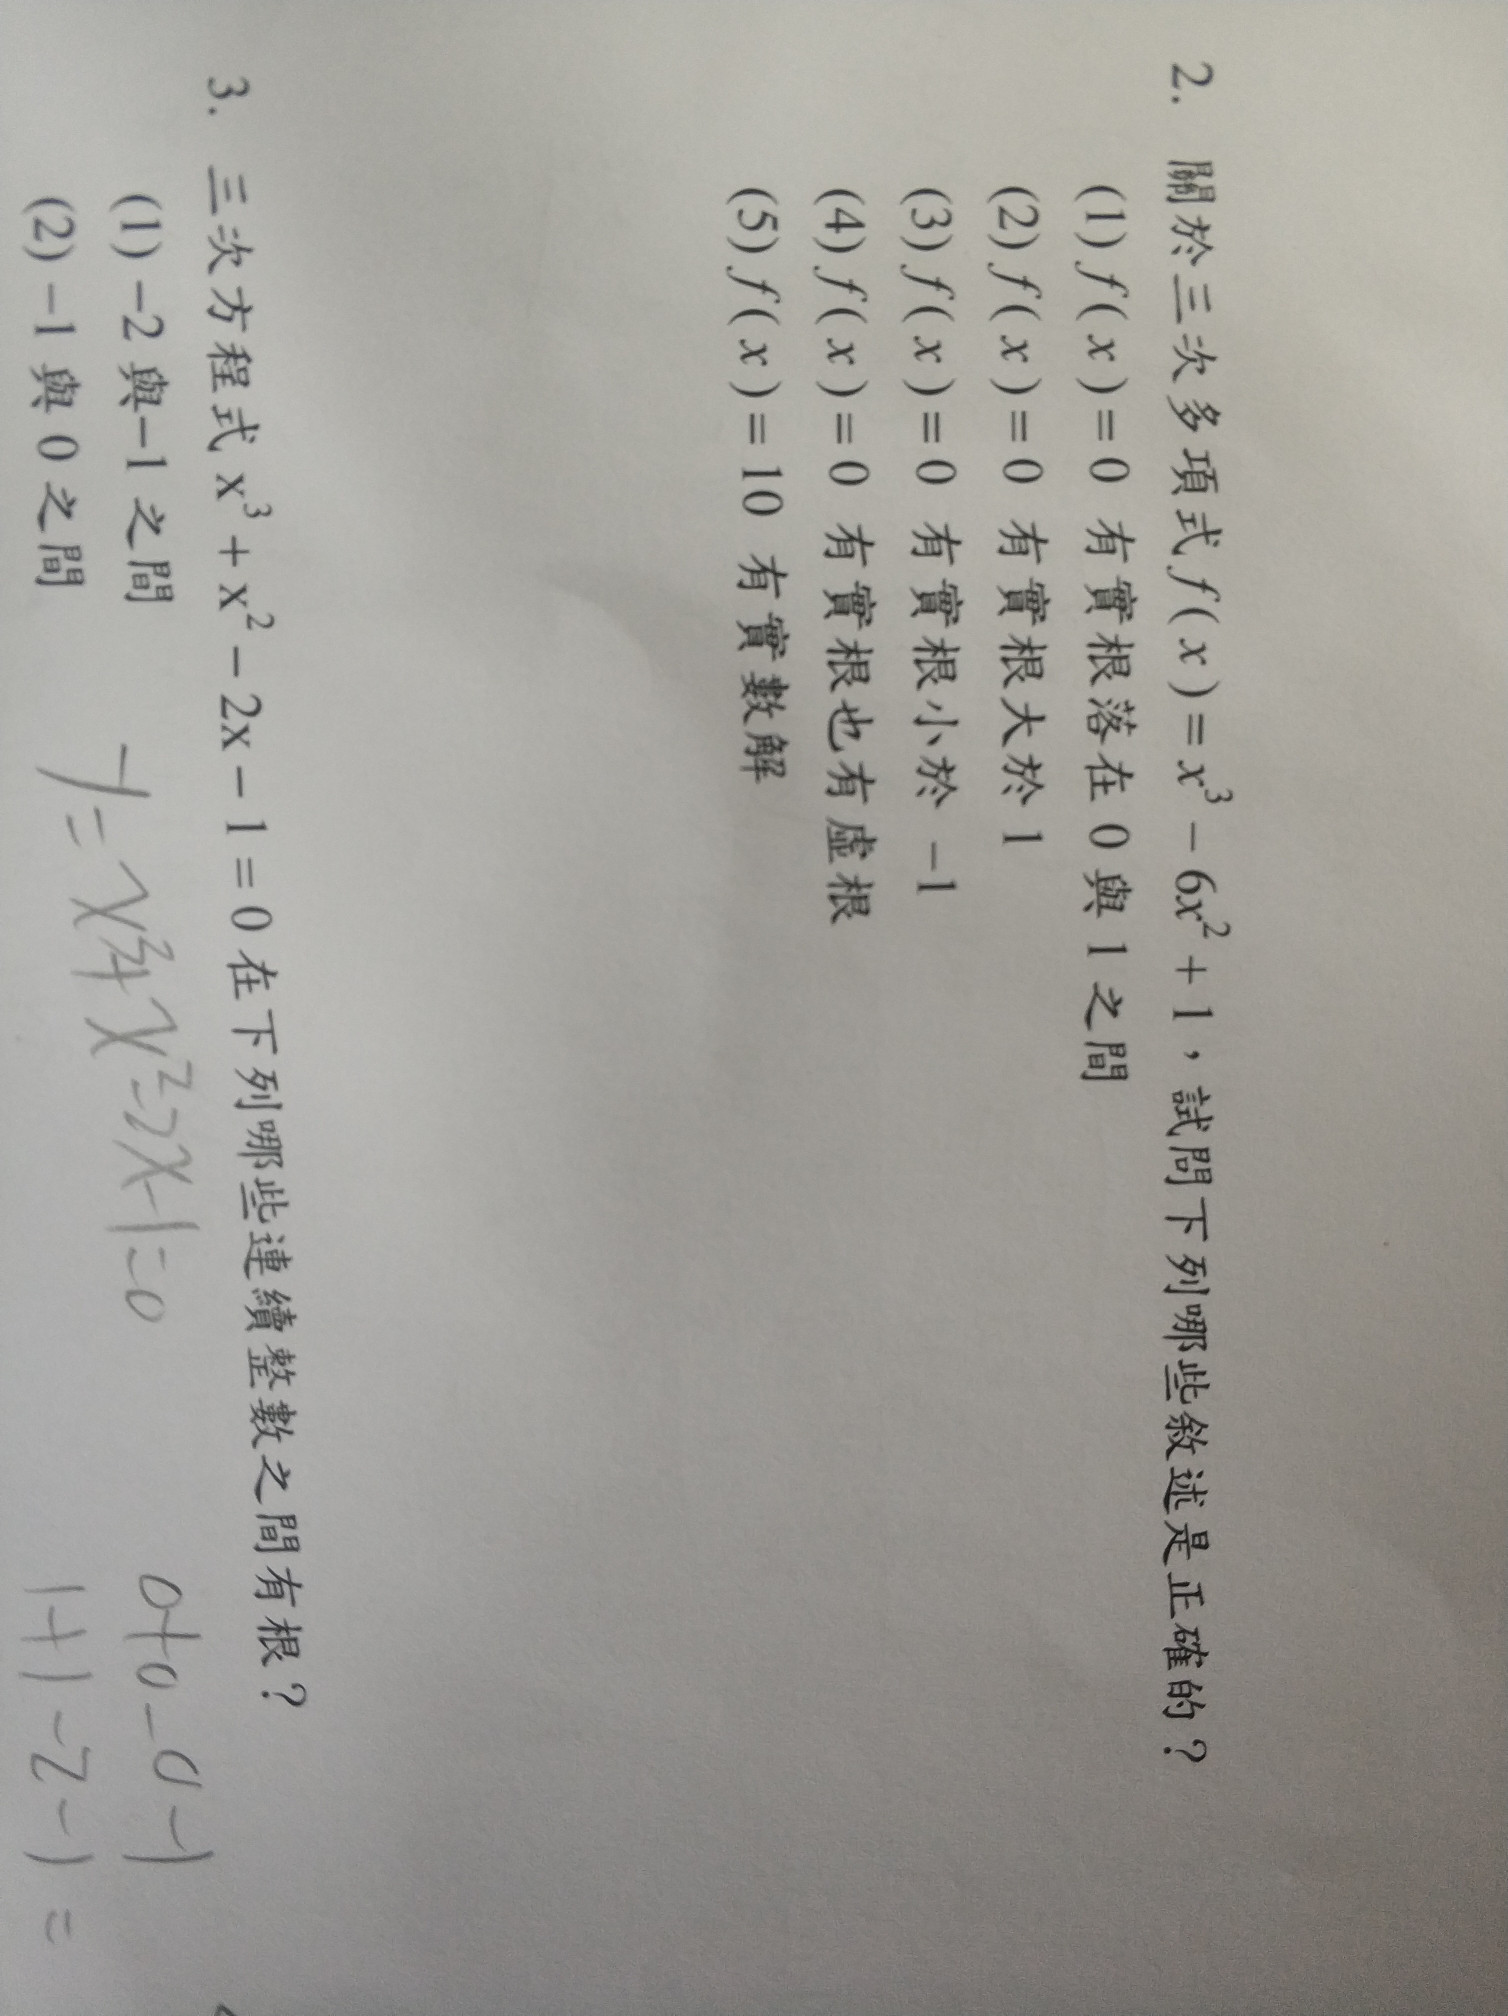 2. 關於三次多項式 f(x)=x³-6x²+1，試問下列哪些敘述是正確的？
(1) f(x)=0 有實根落在 0 與 1 之間
(2) f(x)=0 有實根大於 1
(3) f(x)=0 有實根小於 -1
(4) f(x)=0 有實根也有虛根
(5) f(x)=10 有實數解
3. 三次方程式 x³+x²-2x-1=0 在下列哪些連續整數之間有根？
(1) -2 與 -1 之間
(2) -1 與 0 之間
y=x³+x²-2x-1=0
0+0-0-1
1+1-2-1=